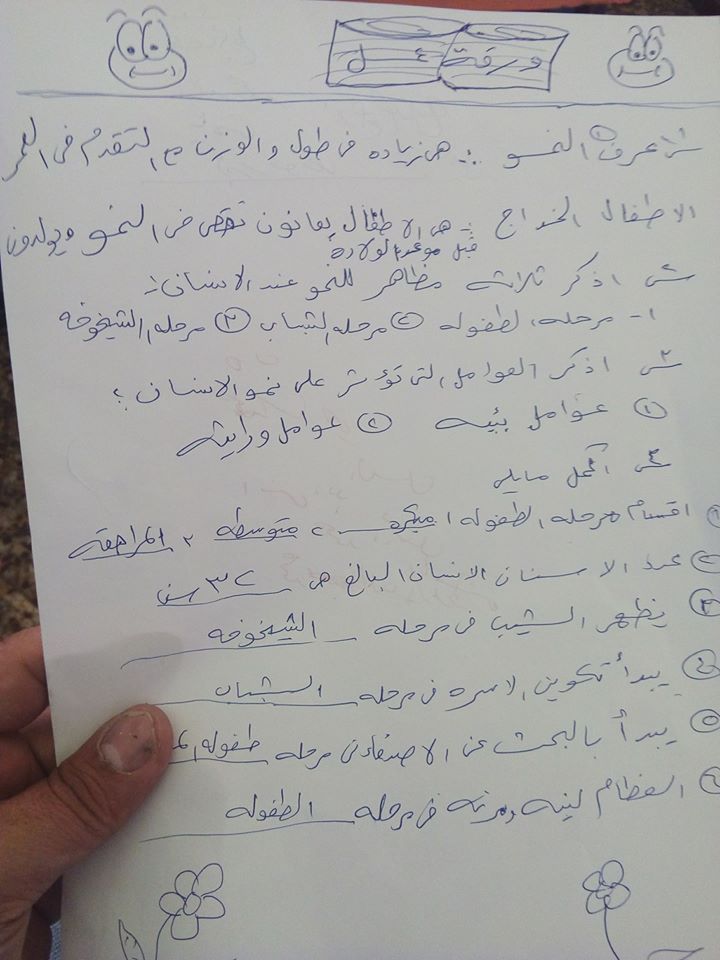 ورقة عمل
س١ عرف النمو :- هي زياده في طول والوزن مع التقدم في العمر
الاطفال الخداج :- هي الاطفال يعانون نقص في النمو ويولدون
قبل موعد الولاده
س٢ اذكر ثلاثه مظاهر للنمو عند الانسان :-
١- مرحله الطفوله ② مرحله الشباب ③ مرحله الشيخوخه
س٣ اذكر العوامل التي تؤثر على نمو الانسان ؟
① عوامل بيئيه ② عوامل وراثيه
س٤ اكمل مايلي
① اقسام مرحله الطفوله ١ مبكره ، متوسطه ، المراهقه
② عدد الاسنان الانسان البالغ ٣٢ سن
③ يظهر الشيب في مرحله الشيخوخه
④ يبدأ تكوين الاسره في مرحله الشباب
⑤ يبدأ بالبحث عن الاصدقاء في مرحله طفوله
⑥ العظام لينه ومرنه في مرحله الطفوله